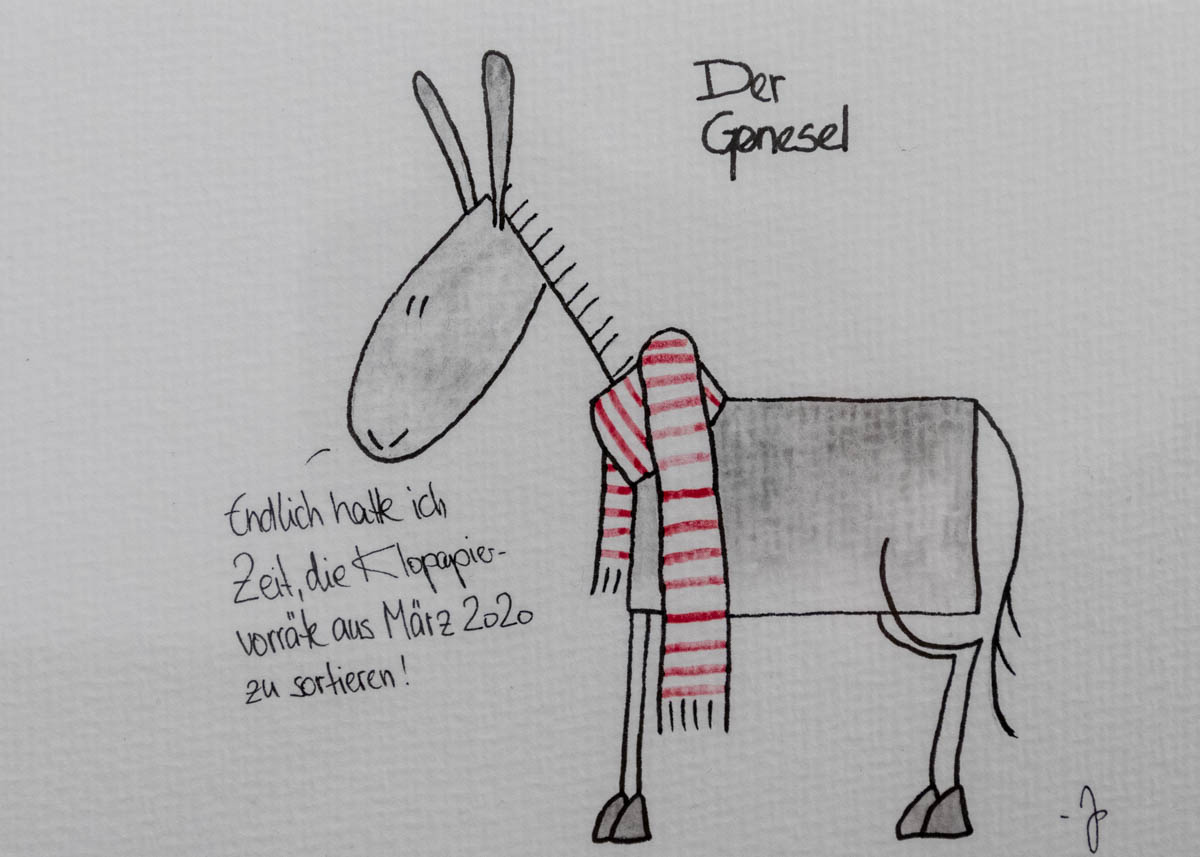 Der
Genesel
Endlich hatte ich
Zeit, die Klopapier-
vorräte aus März 2020
zu sortieren!
-J